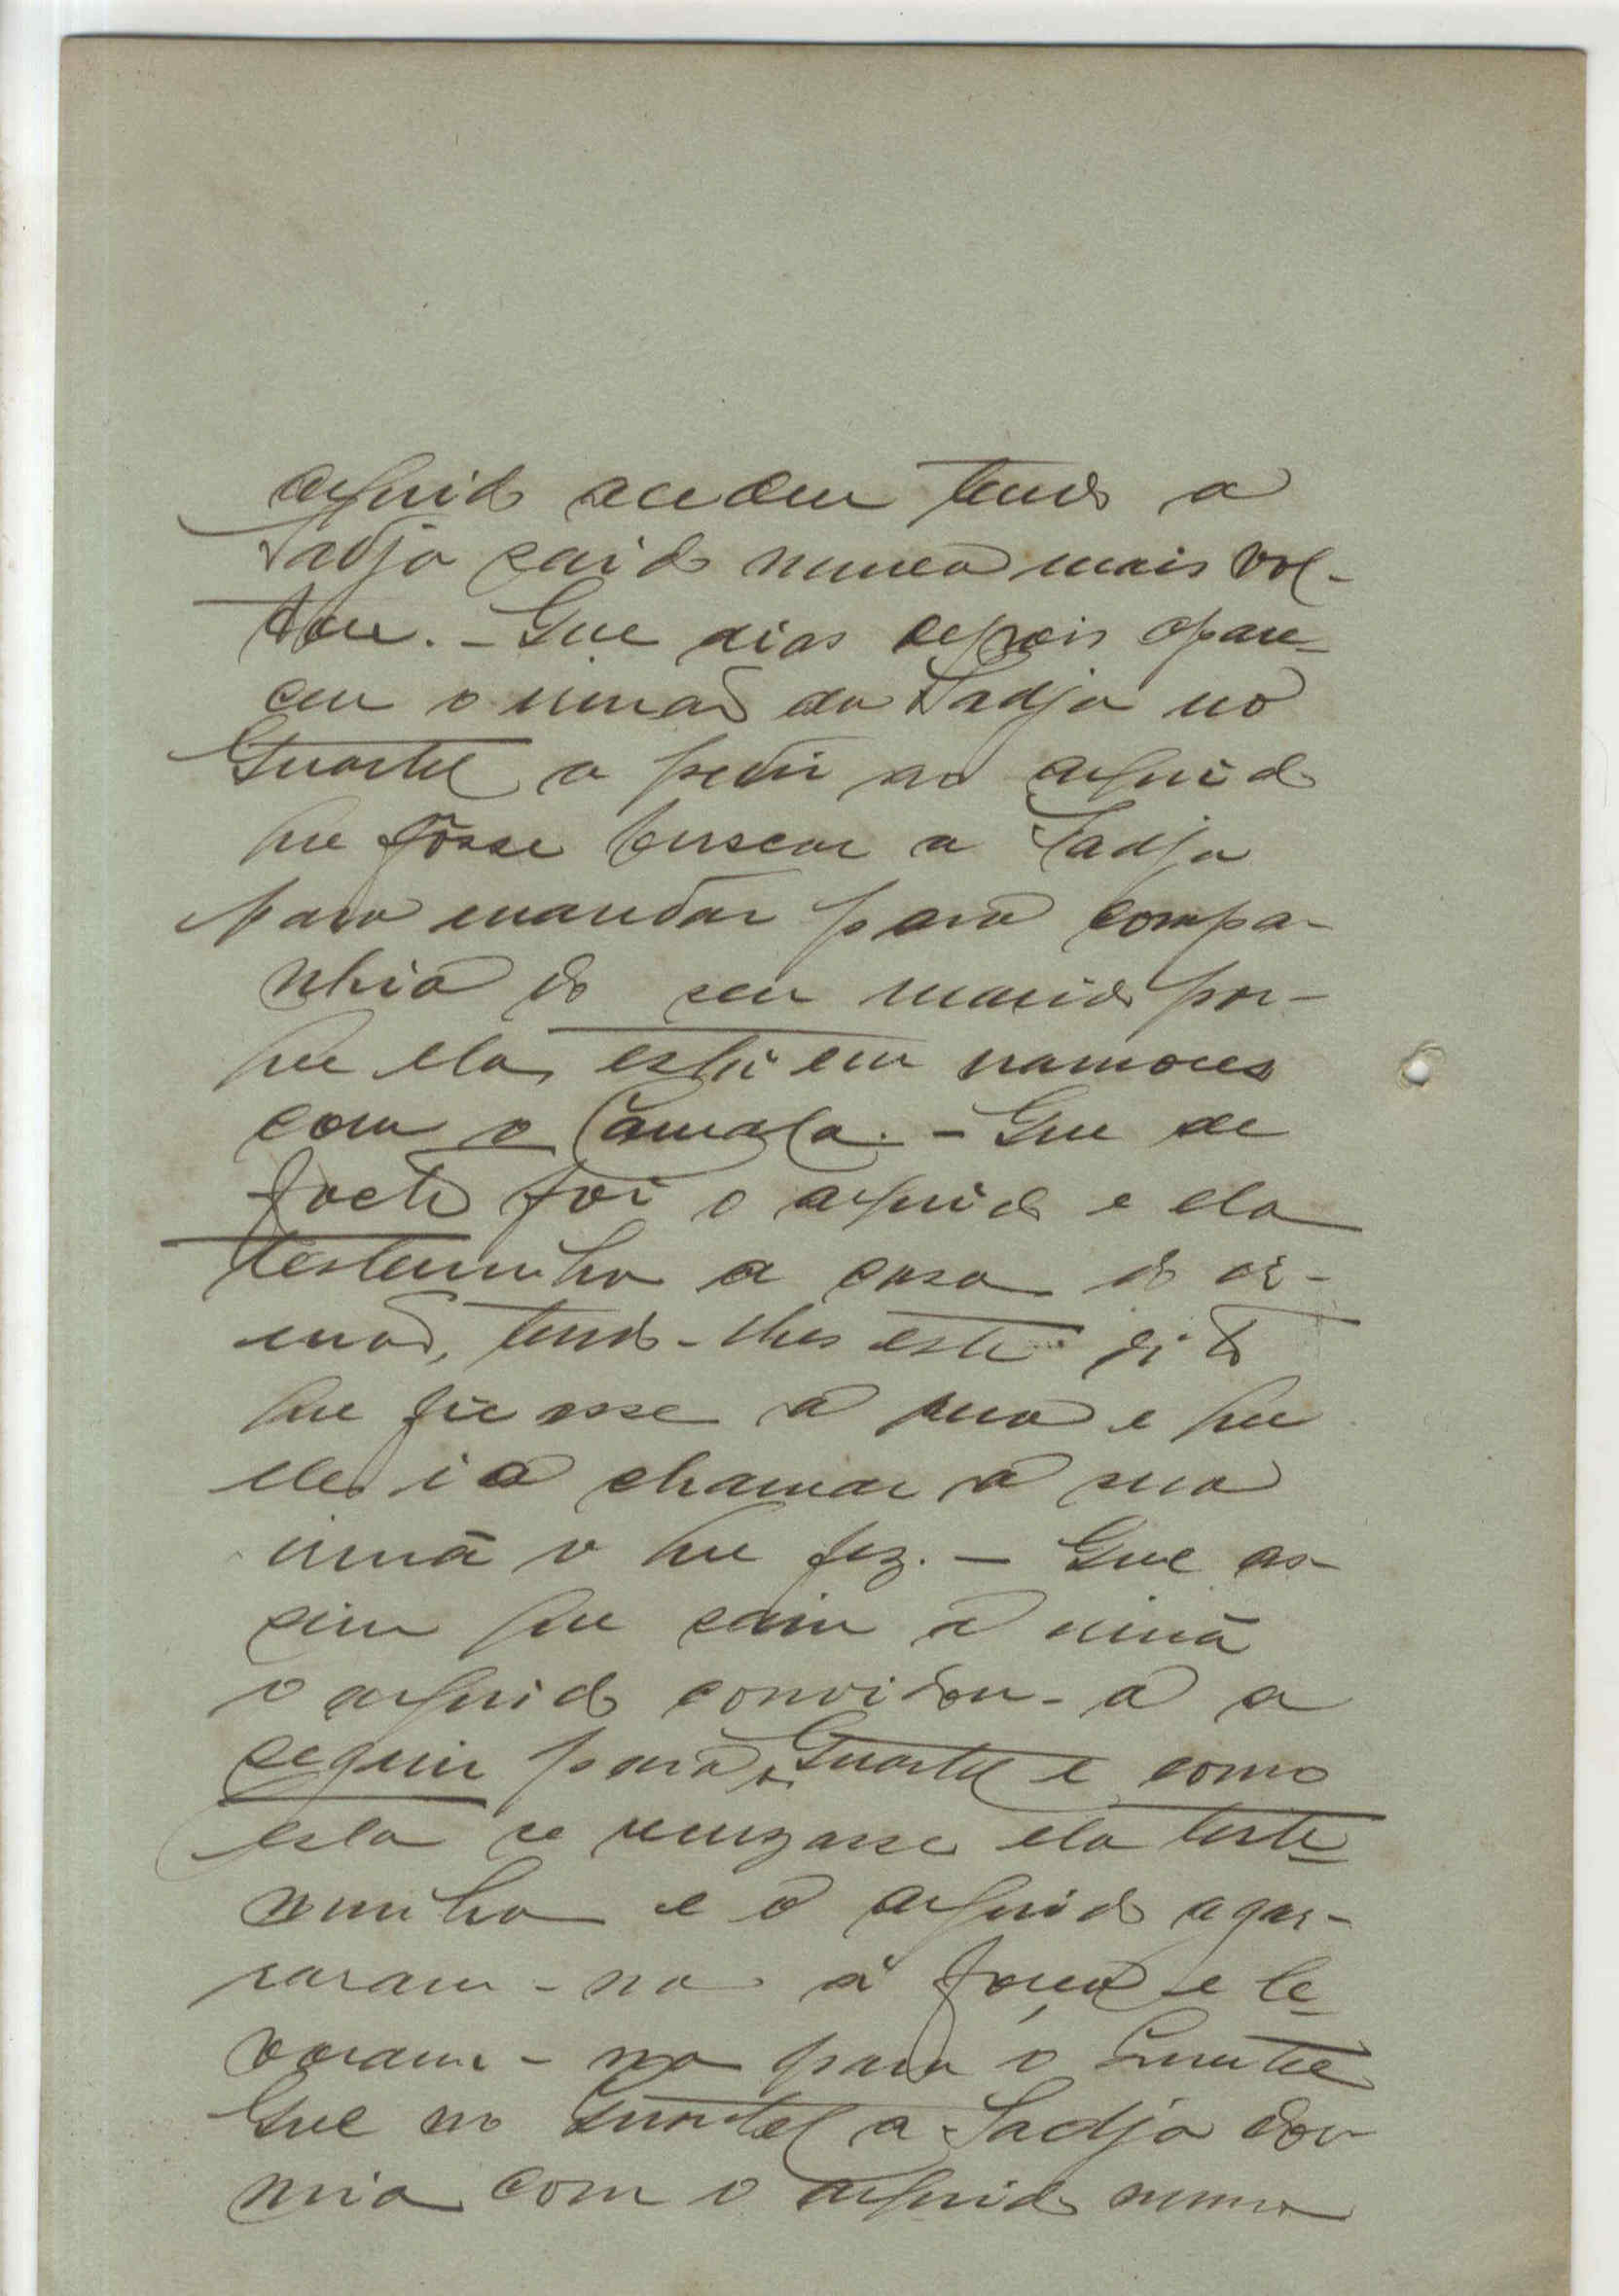 arguido acedeu tendo a
Sadja saido nunca mais vol-
tou. - Que dias depois apare-
ceu o irmão da Sadja no
Quartel a pedir ao arguido
que fôsse buscar a Sadja
para mandar para compa-
nhia do seu marido por-
que ela está em namoros
com o Camala. - Que de
facto foi o arguido e ela
testemunha a casa do ir-
mão, tendo-lhes este dito
que ficasse a rua e que
ele ia chamar a sua
irmã o que fez. - Que as-
sim que saiu a irmã
o arguido convidou-a a
seguir para o Quartel e como
esta se recuzasse ela teste
munha e o arguido agar-
raram-na á força e le
varam-na para o Quartel
Que no Quartel a Sadja dor
mia com o arguido numa